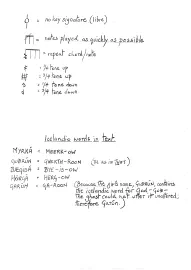 = no key signature (libre).
= notes played as quickly as possible
= repeat chord/note
= 1/4 tone up
= 3/4 tone up
= 1/4 tone down
= 3/4 tone down
Icelandic words in text
MYRKÁ = MEERK-OW
GUÐRÚN = GVOTH-ROON (TH as in "BOTH")
BÆGISÁ = BYE-IS-OW
HÖRGÁ = HERG-OW
GARÚN = GA-ROON (Because the girls name, GUÐRÚN, contains
the icelandic word for God - Guð -
the ghost could not utter it unaltered;
therefore Garún.)